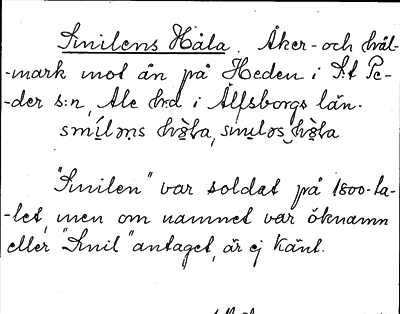 Smilens Håla. Åker- och hvil-
-mark mot ån på Heden i S:t Pe-
-der s:n, Ale hrd i Älfsborgs län.
"Smilen" var soldat på 1800-ta-
-let, men om namnet var öknamn
eller "Smil" antaget, är ej känt.